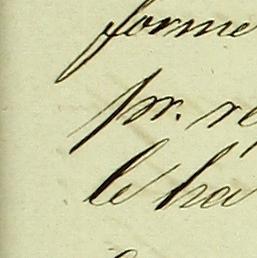 forme
pr. re
le ha